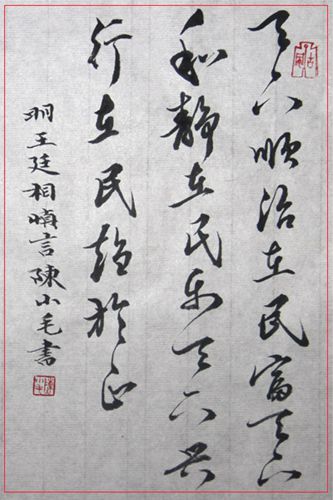 天下顺治在民富天下
和静在民乐天下兴
行在民趋於正
明王廷相慎言陳小毛書